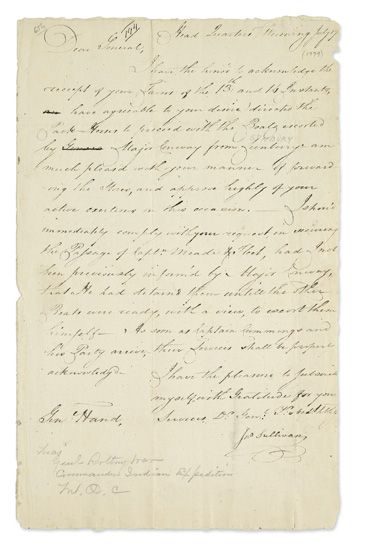 Head Quarters Wyoming July 17
Dear General,
(1779)
I have the honor to acknowledge the
receipt of your Favors of the 13th and 14 Instant,
have agreable to your desire directed the
Pack Horses to proceed with the Boats escorted
by Major Conway from am
much pleased with your manner of forward
ing the Stores, and approve highly of your
active exertions in this occasion. I should
immediatly comply with your request in
the Passage of Capts. Meade & had I not
been previously inform'd by Major Conway,
that He had detain'd them untill the other
Boats were ready, with a view, to escort them
himself As soon as Captain Cummings and
his Party arrive, their Services shall be properly
acknowledged.
I have the pleasure to subscribe
myself with Gratitude for your
Services Dr Genl.
Jno Sullivan
Gen Hand,
Maj
Genl
Commander Indian Expedition